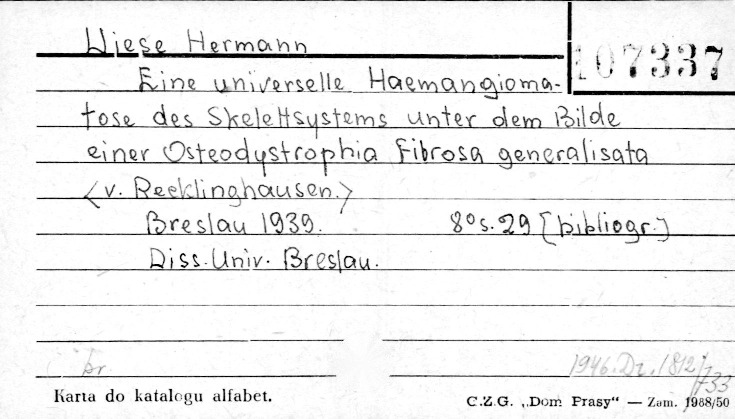 Wiese Hermann
107337
Eine universelle Haemangioma-
tose des Skelettsystems unter dem Bilde
einer Osteodystrophia Fibrosa generalisata
<v. Recklinghausen.>
Breslau 1939. 8° s. 29 [bibliogr.]
Diss. Univ. Breslau.
br
1946. Dz. 1812/733
Karta do katalogu alfabet.
C.Z.G. „Dom Prasy" — Zam. 1968/50